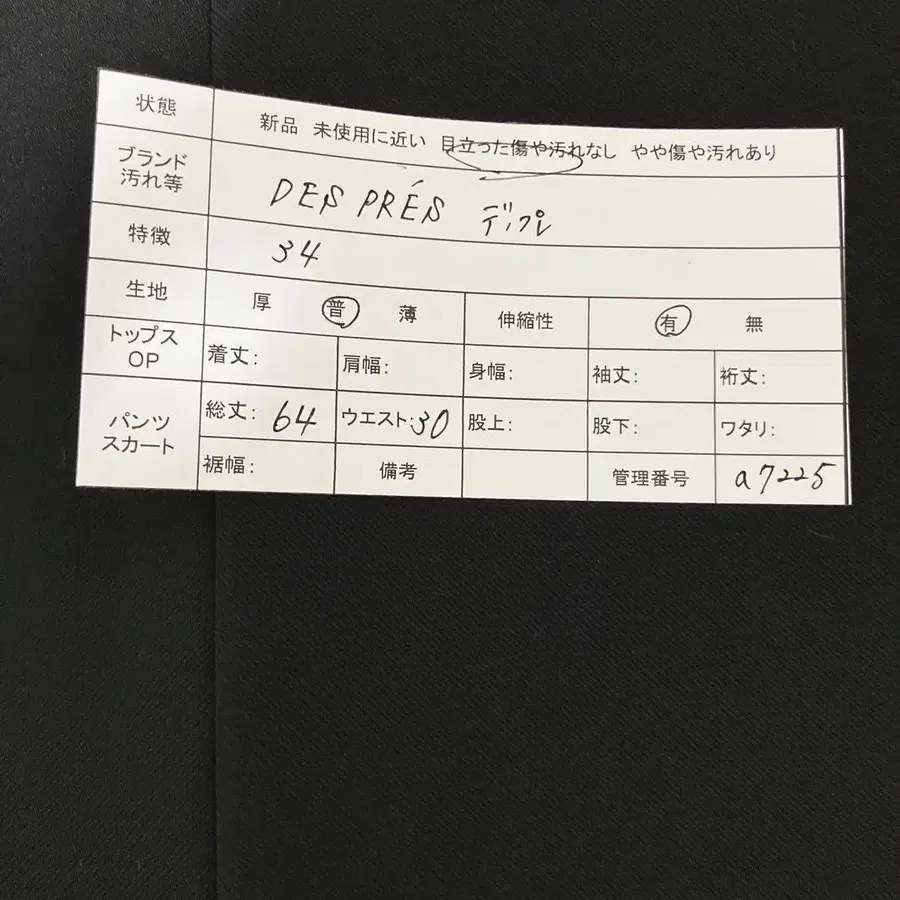 状態 新品 未使用に近い 目立った傷や汚れなし やや傷や汚れあり
ブランド
汚れ等 DES PRÉS デプレ
特徴 34
生地 厚 普 薄 伸縮性 有 無
トップス
OP 着丈: 肩幅: 身幅: 袖丈: 裄丈:
パンツ
スカート 総丈: 64 ウエスト: 30 股上: 股下: ワタリ:
裾幅: 備考 管理番号 a7225